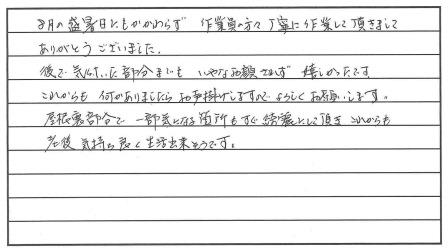 8月の盛暑日にもかかわらず 作業員の方々丁寧に作業して頂きまして
ありがとうございました。
後で気付いた部分までも いやなお顔せず 嬉しかったです
これからも 何がありましたらお声掛けしますので よろしくお願いします。
屋根裏部分で 一部気になる箇所もすぐ綺麗にして頂き これからも
老後 気持ち良く生活出来そうです。